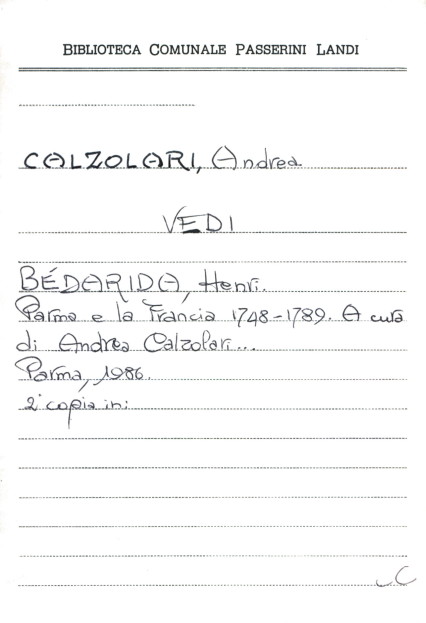 BIBLIOTECA COMUNALE PASSERINI LANDI
CALZOLARI, Andrea
VEDI
BÉDARIDA, Henri.
Parma e la Francia 1748-1789. A cura
di Andrea Calzolari...
Parma, 1986.
2ª copia in: